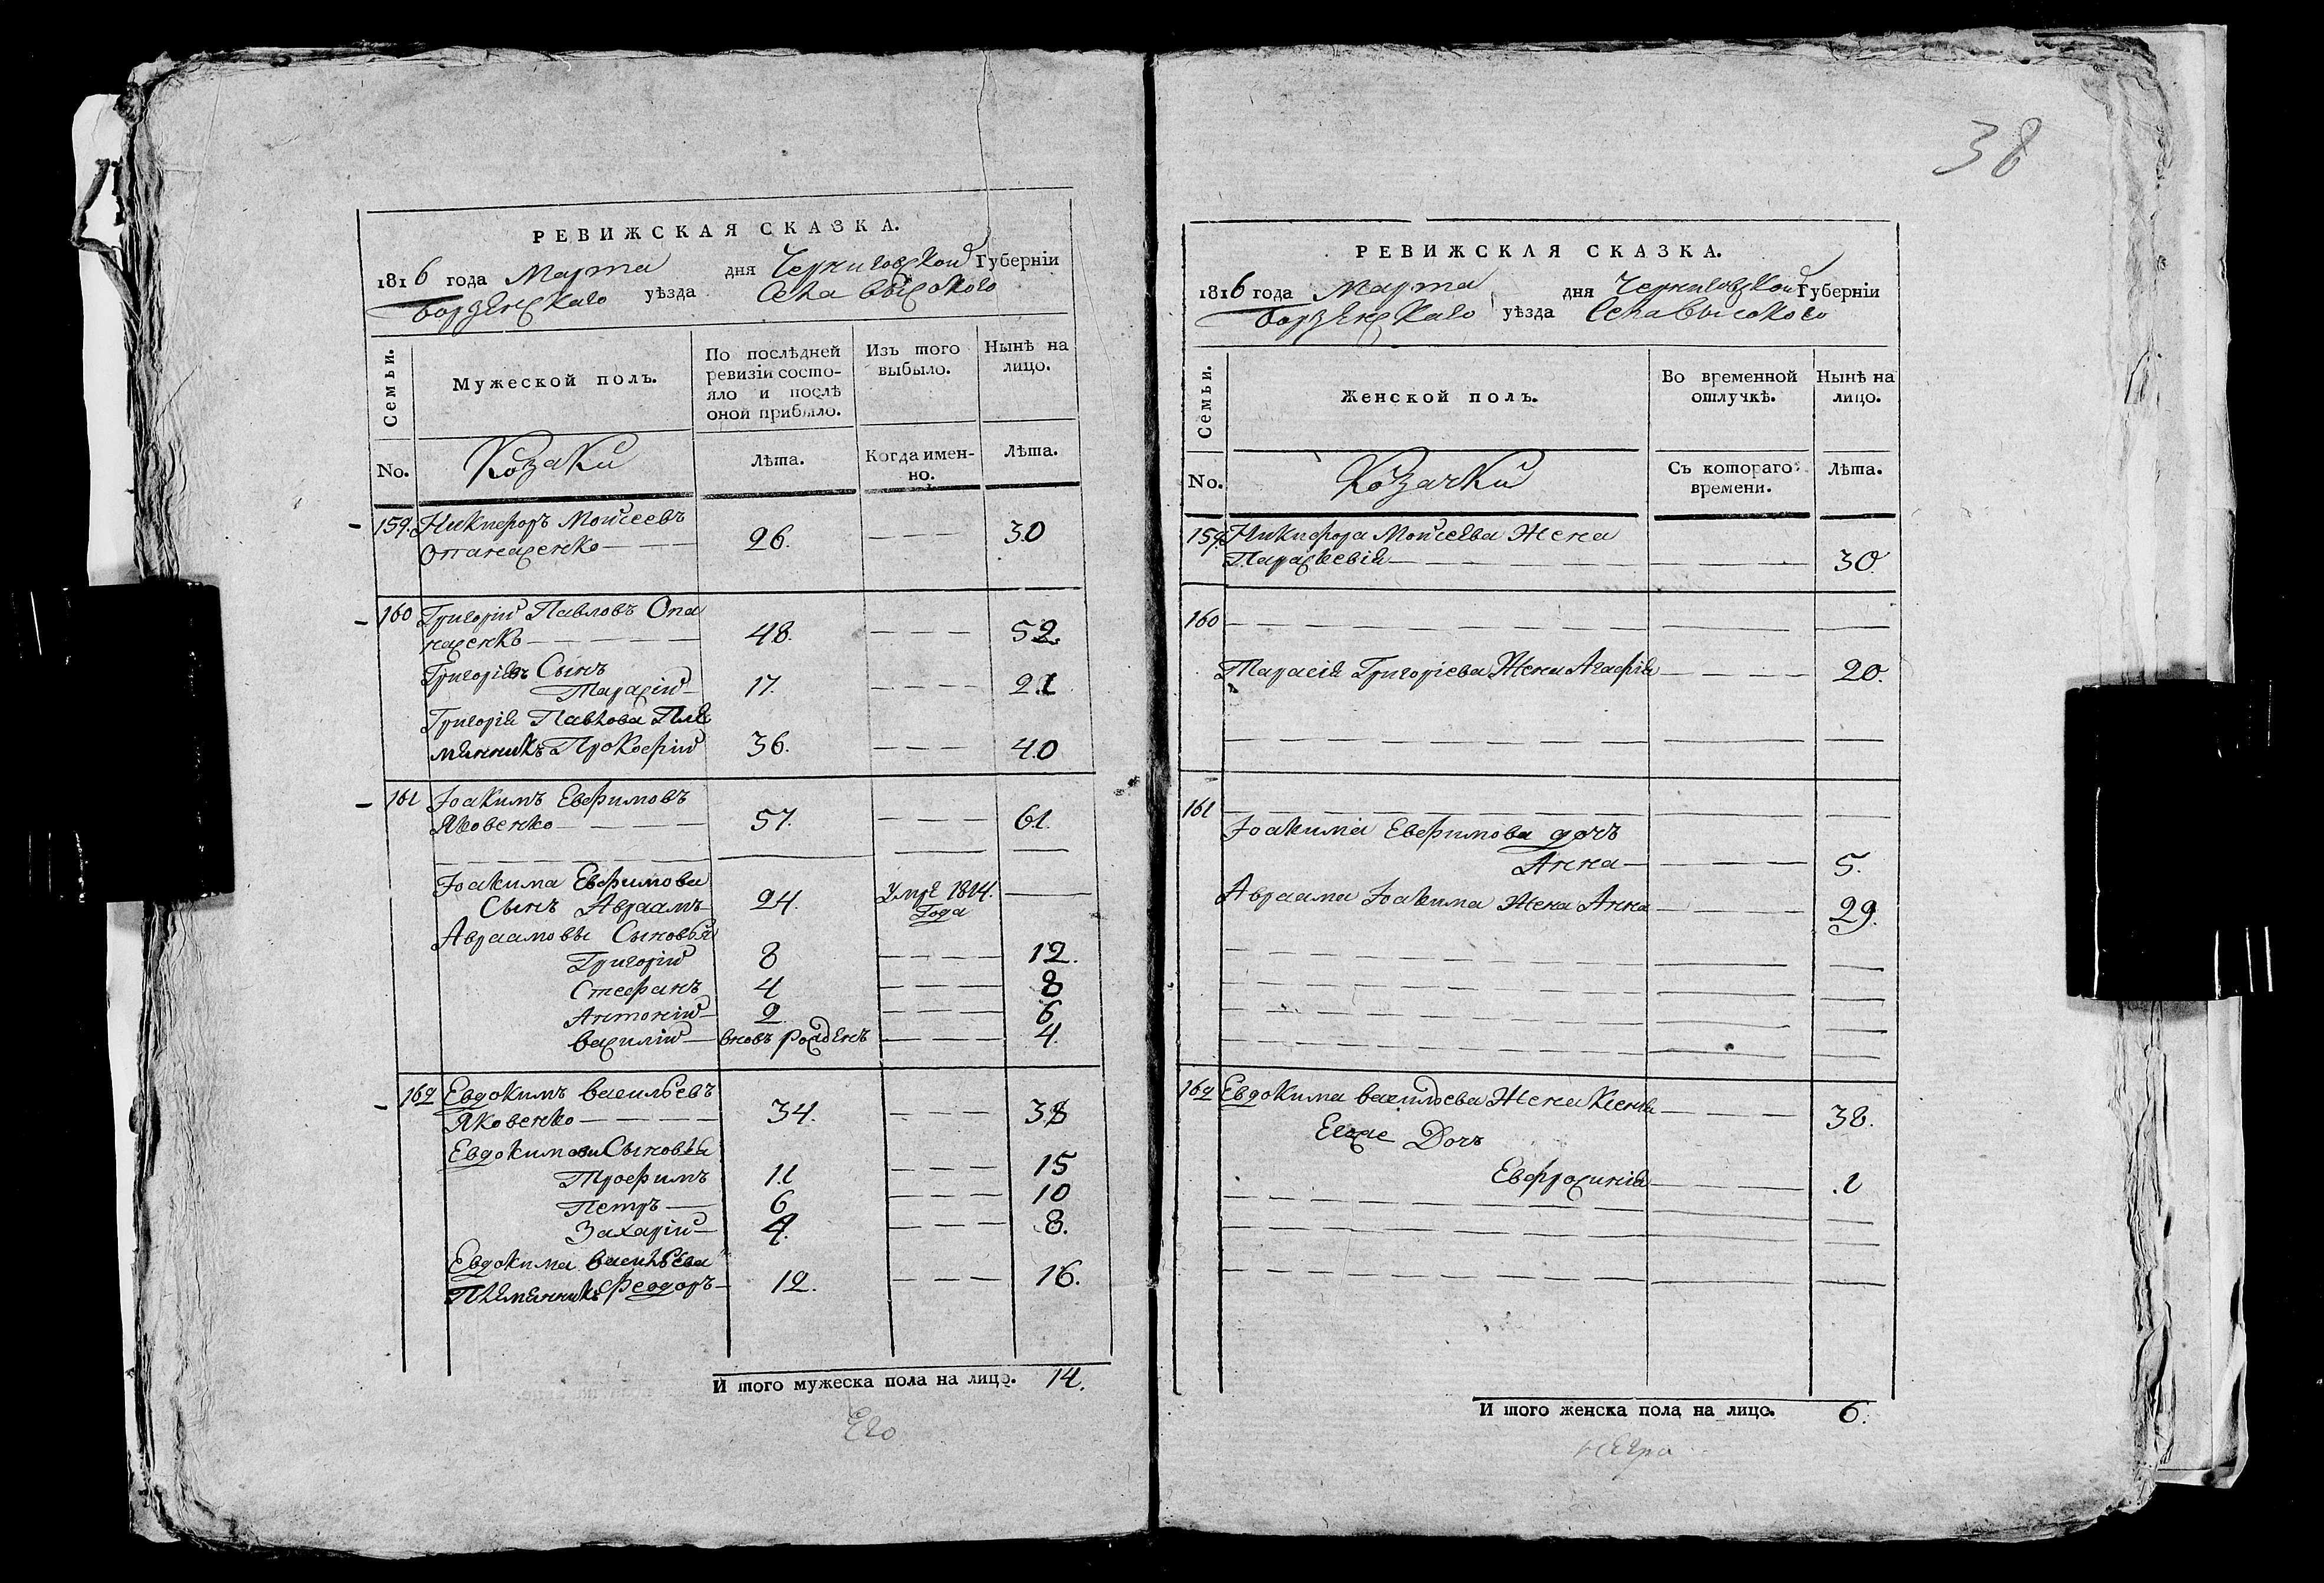 РЕВИЖСКАЯ СКАЗКА.
1816 года Марта дня Черниговской Губерніи
борзенскаго уѣзда Села Высокого
Семьи.
Мужеской полъ.
По послѣдней ревизіи состо-
яло и послѣ
оной прибыло.
Изъ того
выбыло.
Нынѣ на
лицо.
No.
Козаки
Лѣта.
Когда имен-
но.
Лѣта.
159. Никифоръ Моисеевъ
Опанасенко 26. 30
160 Григорій Павловъ Опа
насенкъ 48. 52.
Григоріевъ Сынъ
Тарасій 17. 21
Григорія Павлова Пле
мянникъ Прокофій 36. 40
161 Іоакимъ Евфимовъ
Яковенко 57. 61.
Іоакима Евфимова
Сынъ Авраамъ 24. Умре 1814.
Года
Авраамовы Сыновья
Григорій 8 12.
Стефанъ 4 8
Антоній 2 6
Василій вновь рожденъ 4.
162 Евдокимъ Васильевъ
Яковенко 34. 38
Евдокимови Сыновья
Трофимъ 11 15
Петръ 6 10
Захарій 4. 8.
Евдокима Васильева
Племянникъ Феодоръ 12. 16.
И того мужеска пола на лицо. 14.
Его
38
РЕВИЖСКАЯ СКАЗКА.
1816 года Марта дня Черниговской Губерніи
борзенскаго уѣзда Села Высокого
Семьи.
Женской полъ.
Во временной
отлучкѣ.
Нынѣ на
лицо.
No.
Козачки
Съ котораго
времени.
Лѣта.
159. Никифора Моисеева Жена
Параскевія 30.
160
Тарасія Григоріева Жена Агафія 20.
161
Іоакима Евфимова дочъ
Анна 5.
Авраама Іоакима Жена Анна 29.
162 Евдокима Васильева Жена Ксенія 38.
Егоже Дочъ
Евфросинія 1
И того женска пола на лицо. 6.